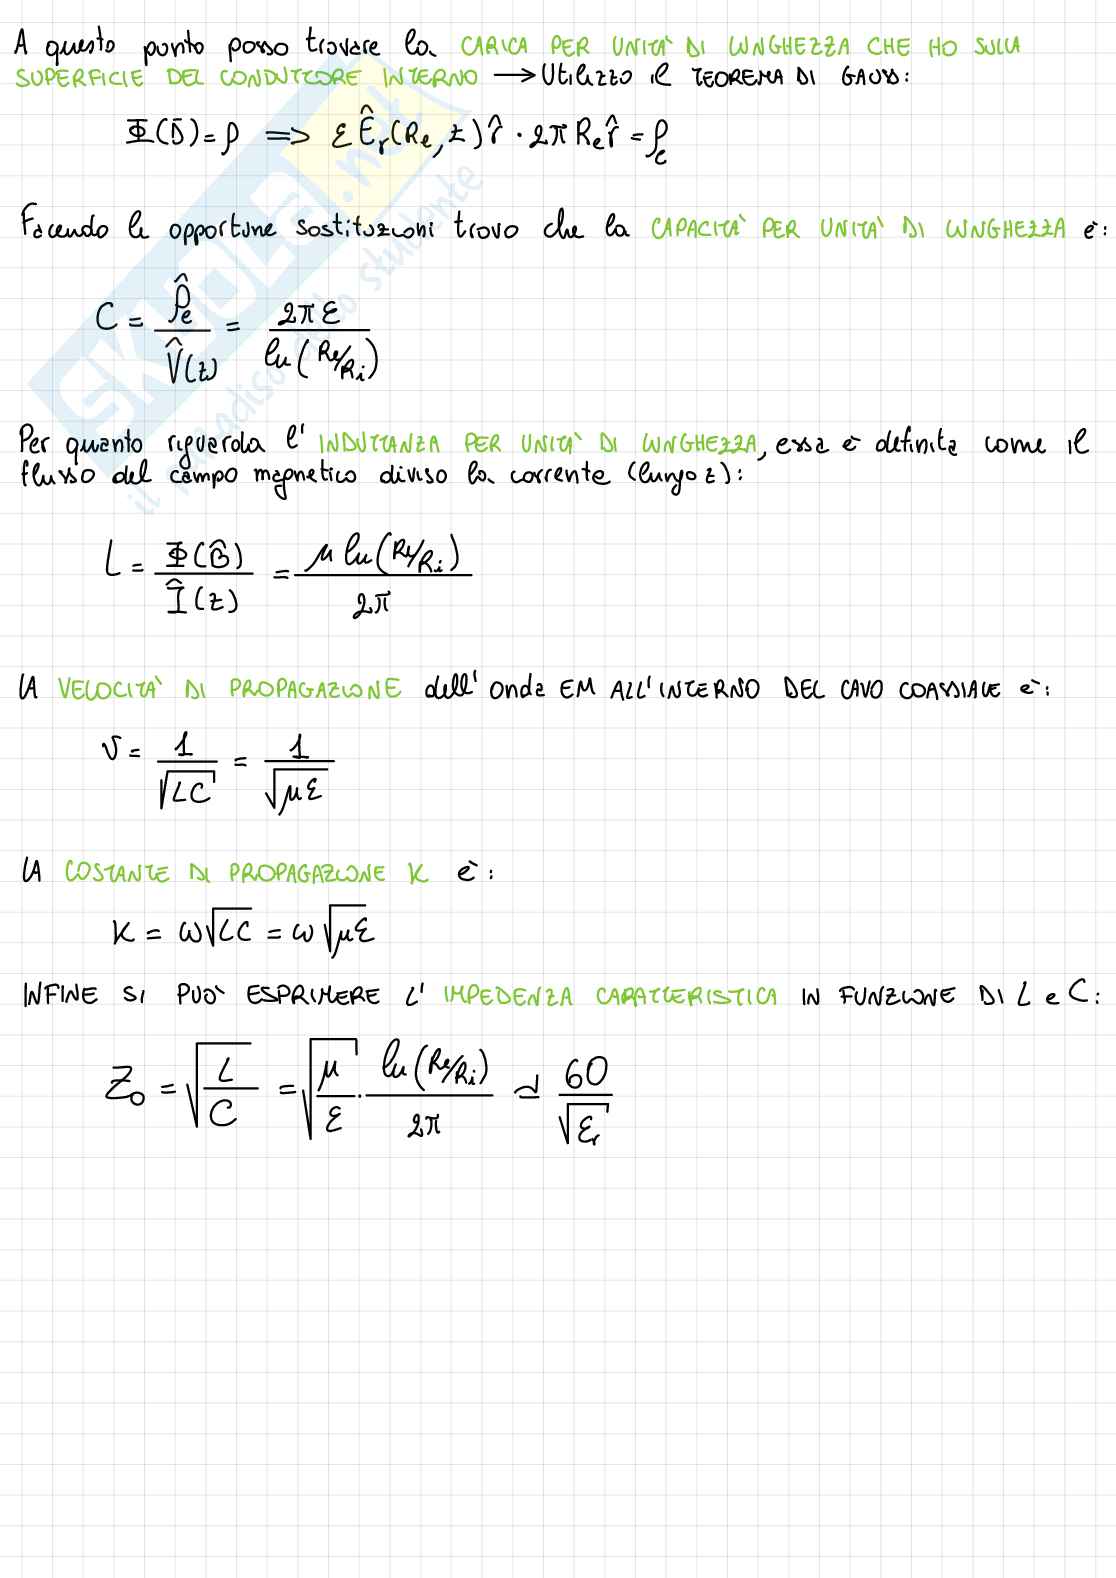 A questo punto posso trovare la CARICA PER UNITA' DI LUNGHEZZA CHE HO SULLA
SUPERFICIE DEL CONDUTTORE INTERNO → Utilizzo il TEOREMA DI GAUSS:
Φ(D̄) = ρ => ε Êr(Re, z) r̂ · 2π Re r̂ = ρe
Facendo le opportune sostituzioni trovo che la CAPACITA' PER UNITA' DI LUNGHEZZA è:
C = ρ̂e / V̂(z) = 2πε / ln(Re/Ri)
Per quanto riguarda l'INDUTTANZA PER UNITA' DI LUNGHEZZA, essa è definita come il
flusso del campo magnetico diviso la corrente (lungo z):
L = Φ(B̂) / Î(z) = μ ln(Re/Ri) / 2π
LA VELOCITA' DI PROPAGAZIONE dell'onda EM ALL'INTERNO DEL CAVO COASSIALE è:
v = 1 / √LC = 1 / √με
LA COSTANTE DI PROPAGAZIONE K è:
K = ω√LC = ω√με
INFINE SI PUÒ ESPRIMERE L'IMPEDENZA CARATTERISTICA IN FUNZIONE DI L e C:
Z0 = √(L/C) = √(μ/ε) · ln(Re/Ri) / 2π ≃ 60 / √εr
SKUOLA.net
il paradiso dello studente